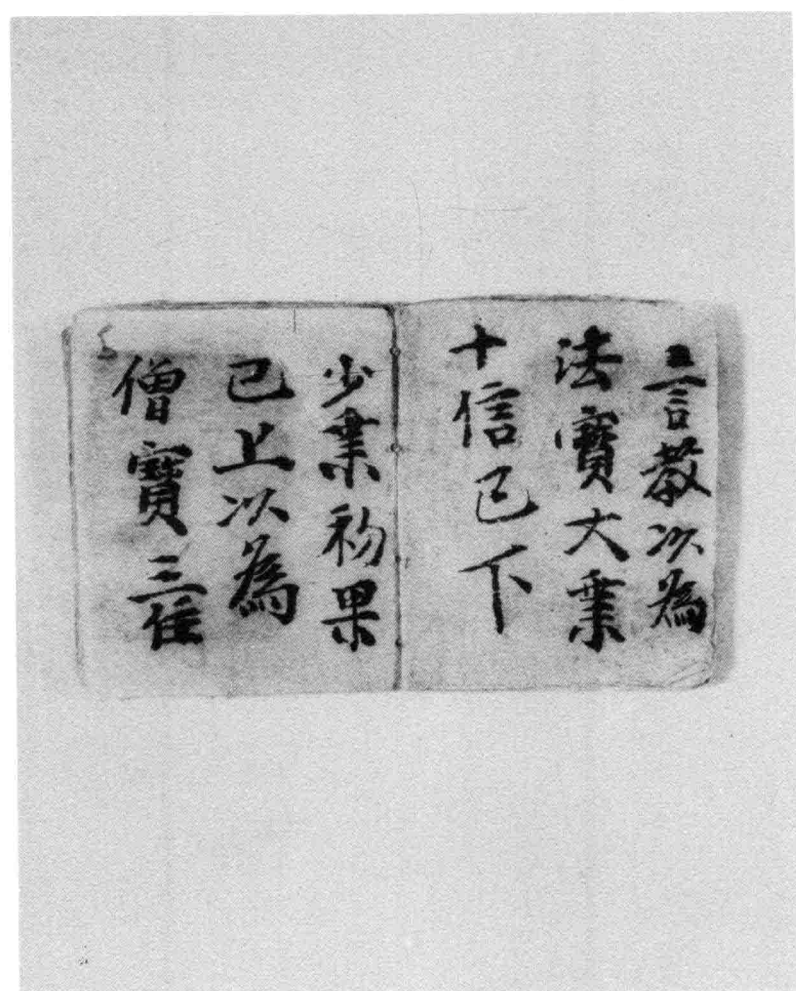 言教以為
法寶大乗
十信已下
少乗初果
已上以為
僧寶三